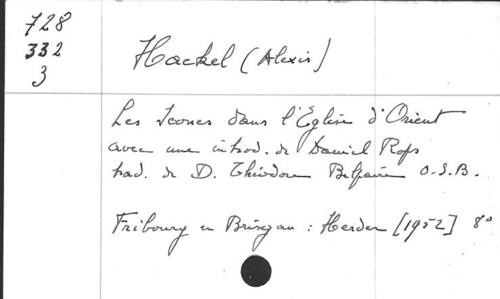 728
332
3
Hackel (Alexis)
Les Icones dans l'Eglise d'Orient
avec une introd. de Daniel Rops
trad. de D. Théodore Belpaire O.S.B.
Fribourg en Brisgau : Herder [1952] 8°